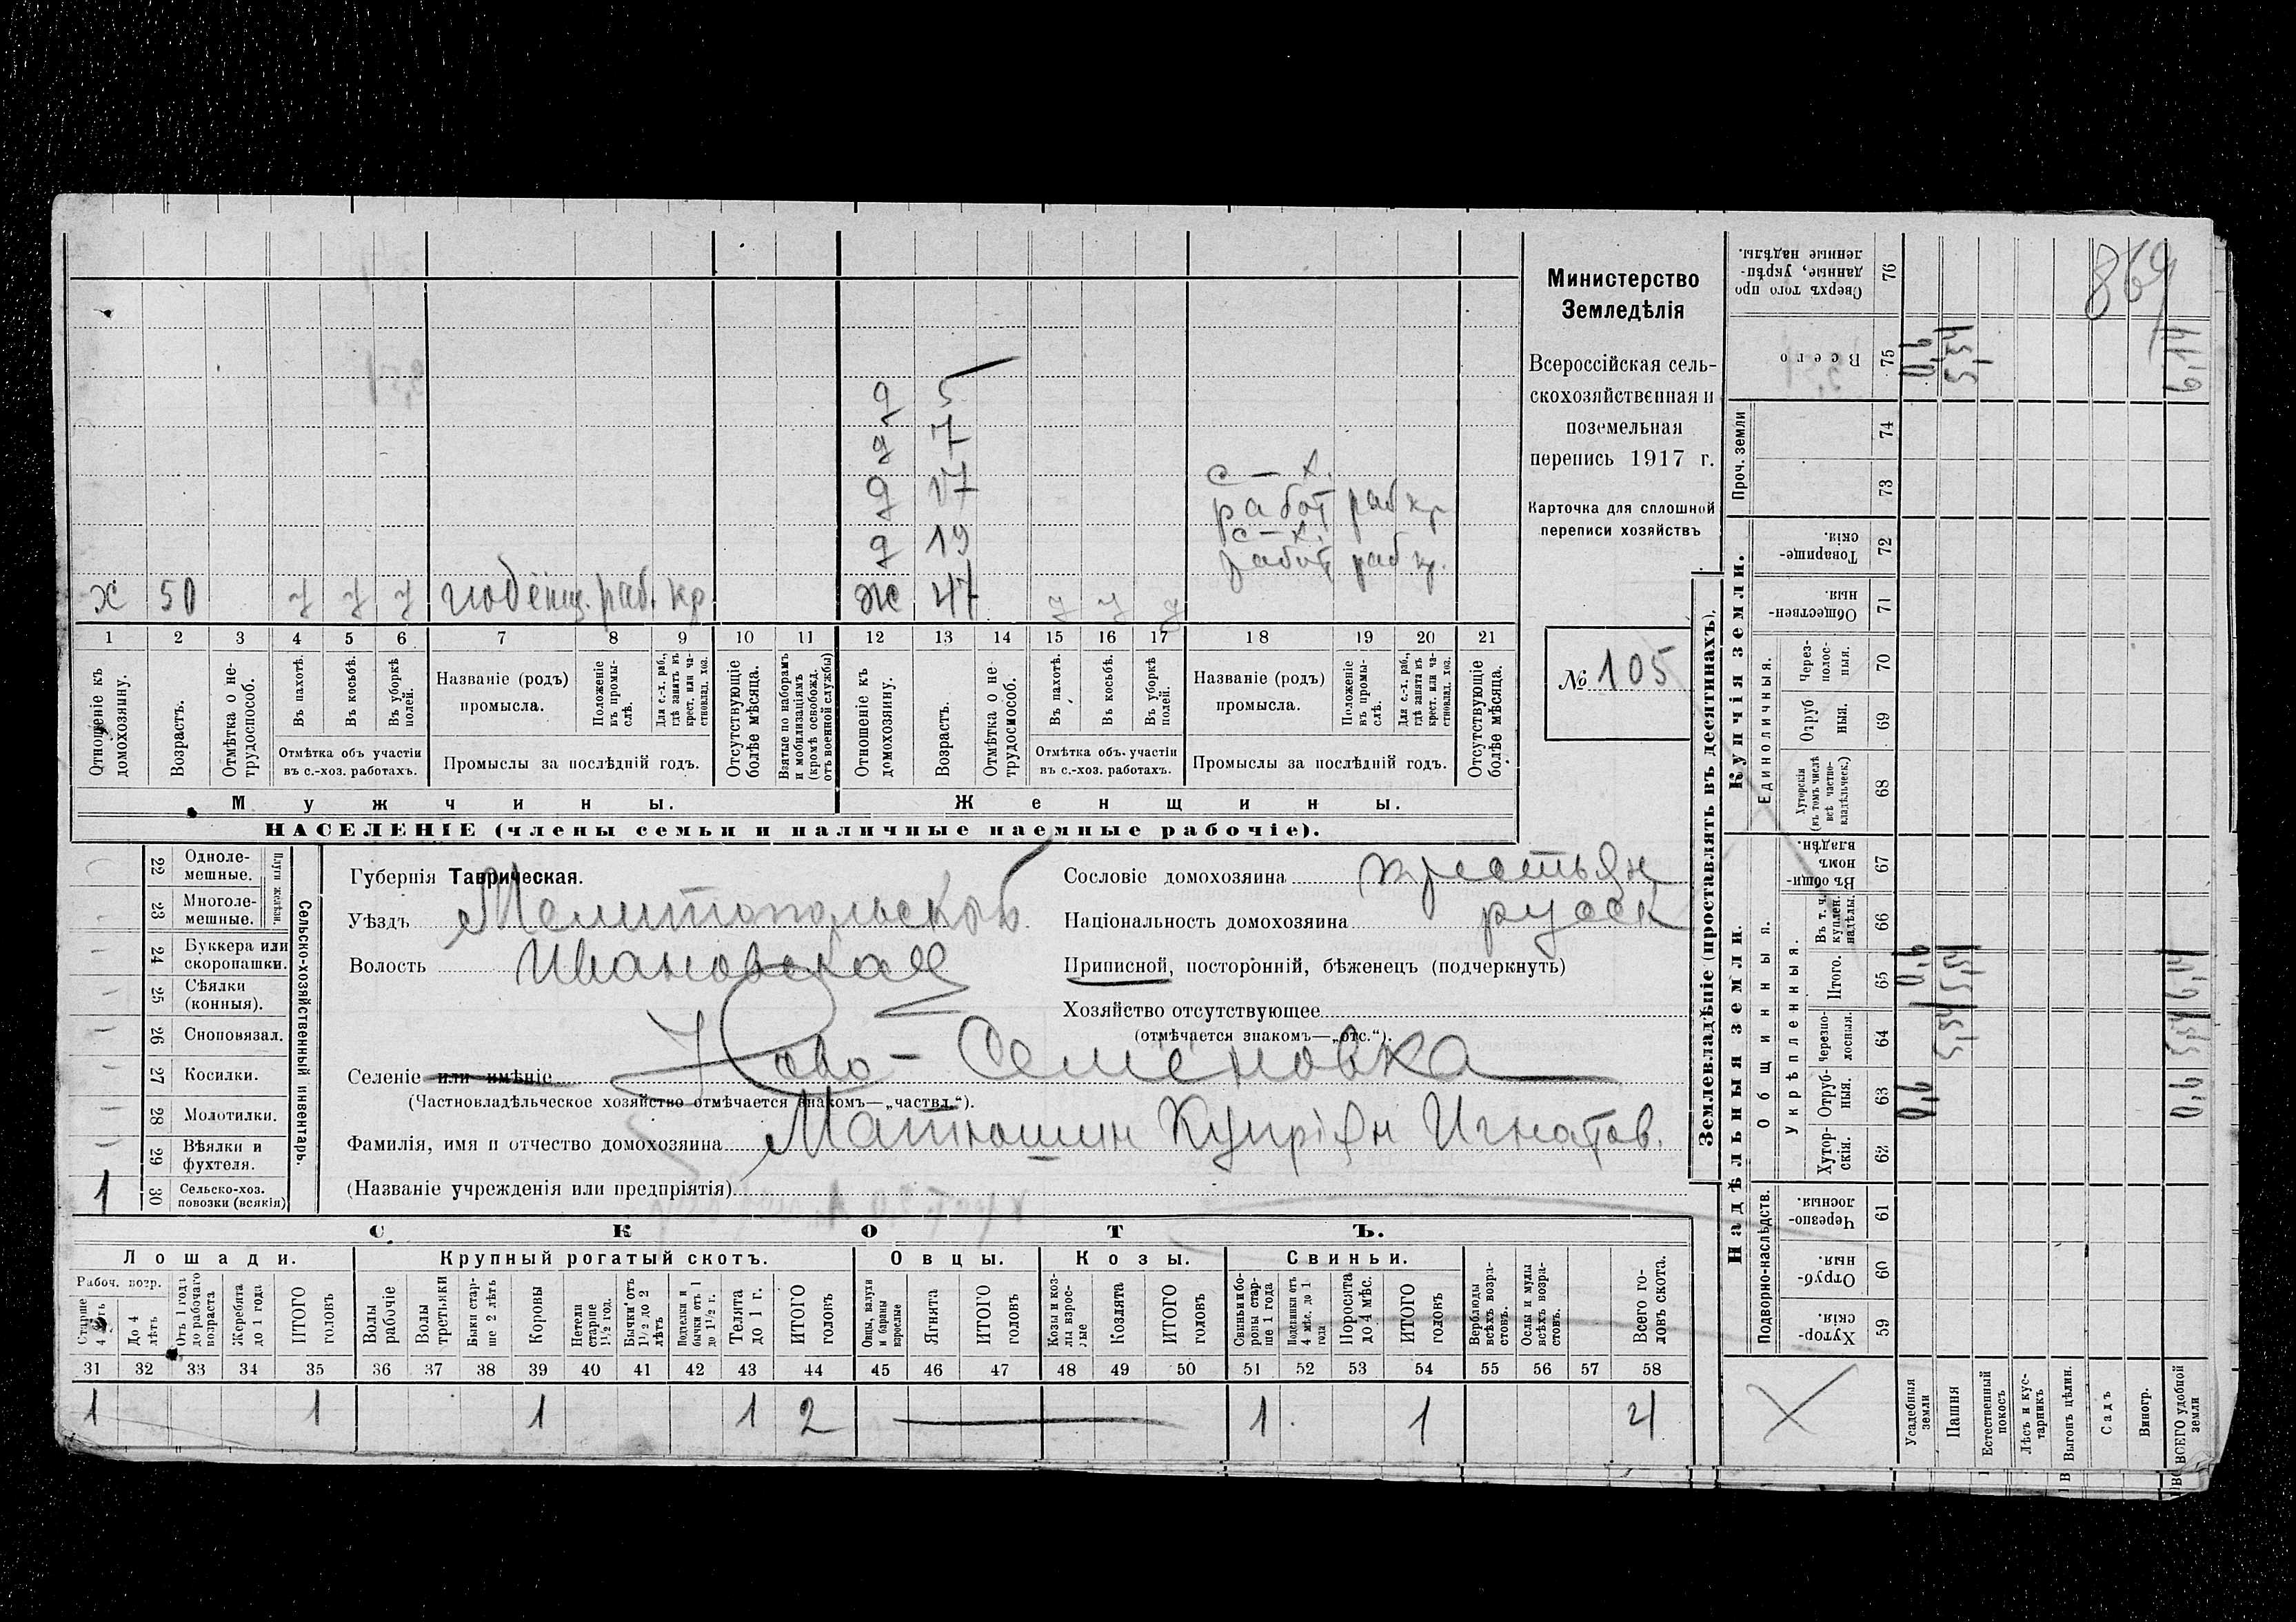 869
Министерство
Земледѣлія
Всероссійская сель-
скохозяйственная и
поземельная
перепись 1917 г.
Карточка для сплошной
переписи хозяйствъ
№ 105
д 5
д 7
с-х.
д 17 работ раб кр
с-х.
д 19 работ раб кр.
х 50 у у у раб. кр ж 47 у у у
1 2 3 4 5 6 7 8 9 10 11 12 13 14 15 16 17 18 19 20 21
Отношеніе къ домохозяину.
Возрастъ.
Отмѣтка о не-трудоспособ.
Въ пахотѣ.
Въ косьбѣ.
Въ уборкѣ полей.
Отмѣтка объ участіи
въ с.-хоз. работахъ.
Названіе (родъ)
промысла.
Положеніе въ промы-слѣ.
Для с.-х. раб., гдѣ занятъ въ крест. или ча-стновлад. хоз.
Промыслы за послѣдній годъ.
Отсутствующіе болѣе мѣсяца.
Взятые по наборамъ и мобилизаціямъ (кромѣ освобожд. отъ военной службы)
Отношеніе къ домохозяину.
Возрастъ.
Отмѣтка о не-трудоспособ.
Въ пахотѣ.
Въ косьбѣ.
Въ уборкѣ полей.
Отмѣтка объ. участіи
въ с.-хоз. работахъ.
Названіе (родъ)
промысла.
Положеніе въ промы-слѣ.
Для с.-х. раб., гдѣ занята въ крест. или ча-стновлад. хоз.
Промыслы за послѣдній годъ.
Отсутствующіе болѣе мѣсяца.
Мужчины.
Женщины.
НАСЕЛЕНІЕ (члены семьи и наличные наемные рабочіе).
22 Одноле-мешные.
23 Многоле-мешные.
Плуги желѣзн.
24 Буккера или скоропашки.
25 Сѣялки (конныя).
26 Сноповязал.
27 Косилки.
28 Молотилки.
29 Вѣялки и фухтеля.
1 30 Сельско-хоз. повозки (всякія)
Сельско-хозяйственный инвентарь.
Губернія Таврическая.
Уѣздъ Мелитопольской
Волость Ивановская
Сословіе домохозяина крестьян
Національность домохозяина русск
Приписной, посторонній, бѣженецъ (подчеркнуть)
Хозяйство отсутствующее
(отмѣчается знакомъ—„отс.“).
Селеніе или имѣніе Ново-Семёновка
(Частновладѣльческое хозяйство отмѣчается знакомъ—„частвл.“).
Фамилія, имя и отчество домохозяина Матюшин Купріян Игнатов.
(Названіе учрежденія или предпріятія)
СКОТЪ.
Лошади.
Крупный рогатый скотъ.
Овцы.
Козы.
Свиньи.
Рабоч. возр.
Старше 4 лѣтъ
До 4 лѣтъ
Отъ 1 года до рабочаго возраста
Жеребята до 1 года
ИТОГО головъ
Волы рабочіе
Волы третьяки
Быки стар-ше 2 лѣтъ
Коровы
Нетели старше 1½ год.
Бычки отъ 1½ до 2 лѣтъ
Подтелки и бычки отъ 1 до 1½ г.
Телята до 1 г.
ИТОГО головъ
Овцы, валухи и бараны взрослые
Ягнята
ИТОГО головъ
Козы и коз-лы взрос-лые
Козлята
ИТОГО головъ
Свиньи и бо-ровы стар-ше 1 года
Подсвинки отъ 4 мѣс. до 1 года
Поросята до 4 мѣс.
ИТОГО головъ
Верблюды всѣхъ возра-стовъ.
Ослы и мулы всѣхъ возра-стовъ.
Всего го-ловъ скота.
31 32 33 34 35 36 37 38 39 40 41 42 43 44 45 46 47 48 49 50 51 52 53 54 55 56 57 58
1 1 1 1 2 1 1 4
Землевладѣніе (проставлять въ десятинахъ).
Надѣльныя земли.
Купчія земли.
Проч. земли
Подворно-наслѣдств.
Общинныя.
Укрѣпленныя.
Единоличныя.
59 Хутор-скія.
60 Отруб-ныя.
61 Черезпо-лосныя.
62 Хутор-скія.
63 Отруб-ныя.
64 Черезпо-лосныя.
65 Итого.
66 Въ т. ч. куплен. надѣлы.
67 Въ общи-номъ владѣн.
68 Хуторскія (въ томъ числѣ всѣ частно-владѣльческ.)
69 Отруб ныя.
70 Через-полос-ныя.
71 Обществен-ныя.
72 Товарище-скія.
73
74
75 Всего
76 Сверхъ того про данные, укрѣп-ленные надѣлы.
Усадебныя земли
Пашня
Естественный покосъ
Лѣсъ и кус-тарникъ
Выгонъ цѣлин.
Садъ
Виногр.
ВСЕГО удобной земли